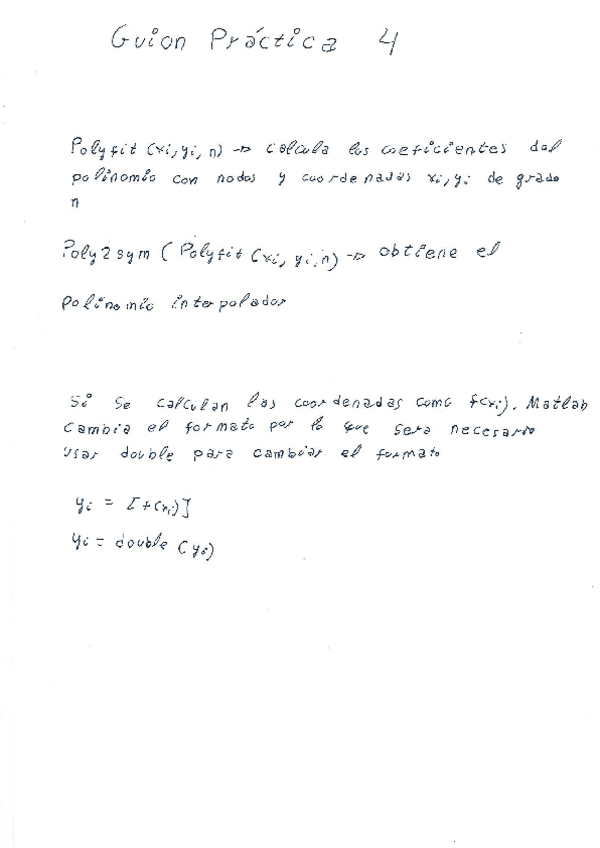 Guion Práctica 4
Polyfit (xi, yi, n) -> calcula los coeficientes del
polinomio con nodos y coordenadas xi, yi de grado
n
Poly2sym (Polyfit (xi, yi, n) -> obtiene el
polinomio interpolador
Si se calculan las coordenadas como f(xi). Matlab
cambia el formato por lo que sera necesario
usar double para cambiar el formato
yi = [f(xi)]
yi = double (yi)